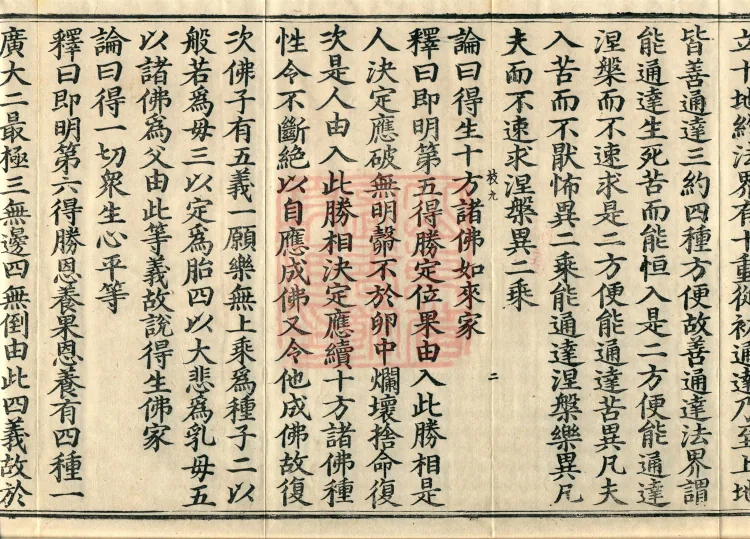 立十地約法界有十重從初通達乃至上地
皆善通達三約四種方便故善通達法界謂
能通達生死苦而能恒入是二方便能通達
涅槃而不速求是二方便能通達苦異凡夫
入苦而不厭怖異二乘能通達涅槃樂異凡
夫而不速求涅槃異二乘
二
論曰得生十方諸佛如來家
釋曰即明第五得勝定位果由入此勝相是
人決定應破無明㲉不於卵中爛壞捨命復
次是人由入此勝相決定應續十方諸佛種
性令不斷絕以自應成佛又令他成佛故復
次佛子有五義一願樂無上乘爲種子二以
般若爲母三以定爲胎四以大悲爲乳母五
以諸佛爲父由此等義故說得生佛家
論曰得一切衆生心平等
釋曰即明第六得勝恩養果恩養有四種一
廣大二最極三無邊四無倒由此四義故於